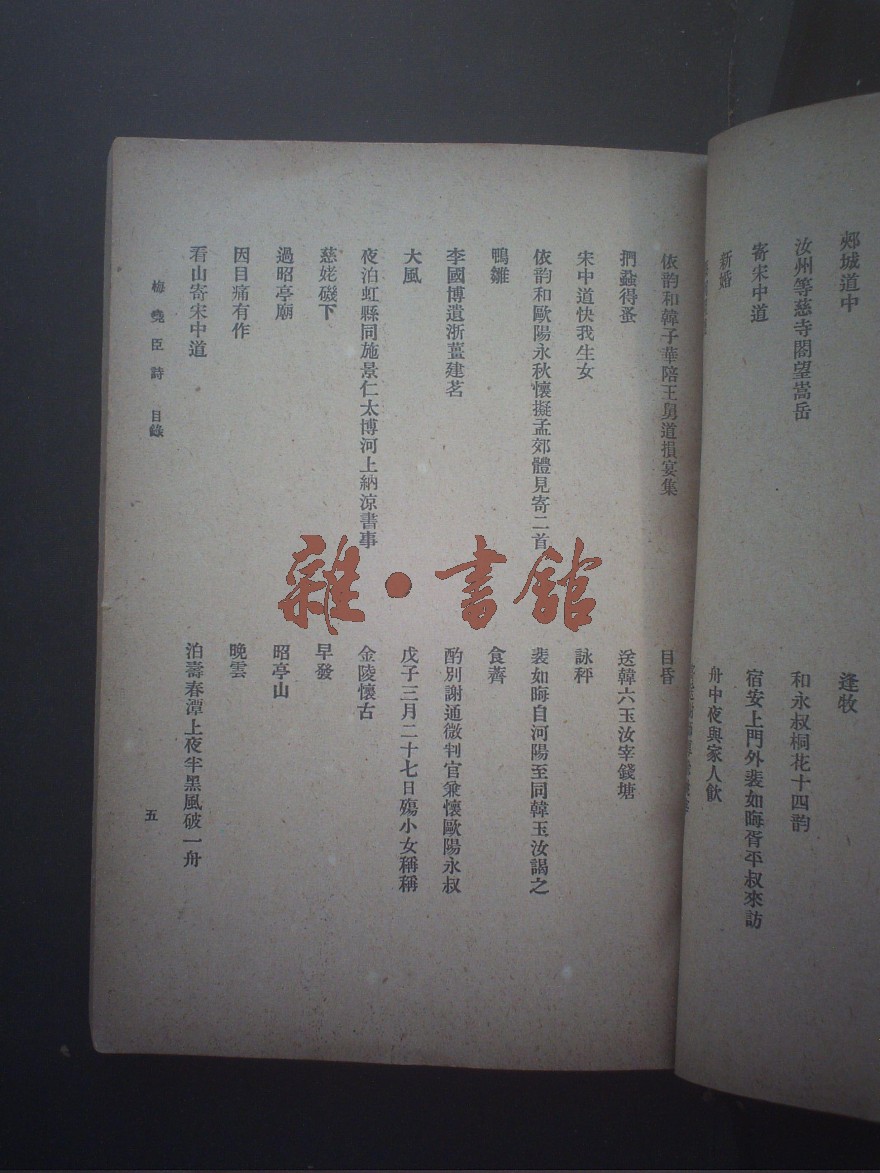 郟城道中
逢牧
汝州等慈寺閣望嵩岳
和永叔桐花十四韵
寄宋中道
宿安上門外裴如晦胥平叔來訪
新婚
舟中夜與家人飲
依韵和韓子華陪王舅道損宴集
目昏
捫蝨得蚤
送韓六玉汝宰錢塘
宋中道快我生女
詠秤
依韵和歐陽永秋懷擬孟郊體見寄二首
裴如晦自河陽至同韓玉汝謁之
鴨雛
食薺
李國博遺浙薑建茗
酌別謝通微判官兼懷歐陽永叔
大風
戊子三月二十七日殤小女稱稱
夜泊虹縣同施景仁太博河上納涼書事
金陵懷古
慈姥磯下
早發
過昭亭廟
昭亭山
因目痛有作
晚雲
看山寄宋中道
泊壽春潭上夜半黑風破一舟
梅堯臣詩 目錄
五
雜·書館